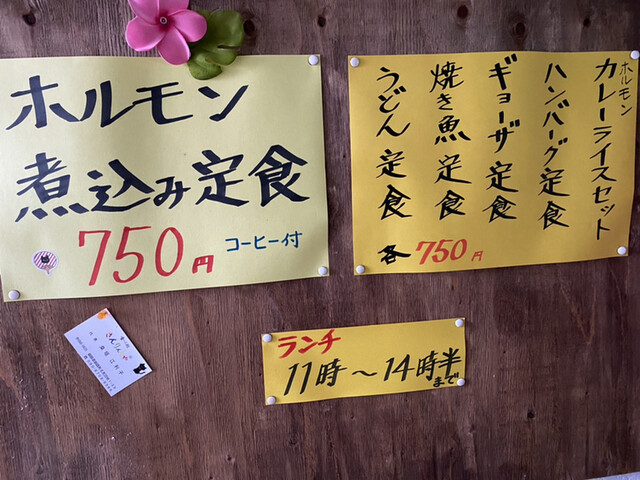 ホルモン
煮込み定食
750円
コーヒー付
ホルモン
カレーライスセット
ハンバーグ定食
ギョーザ定食
焼き魚定食
うどん定食
各750円
ランチ
11時～14時半
まで